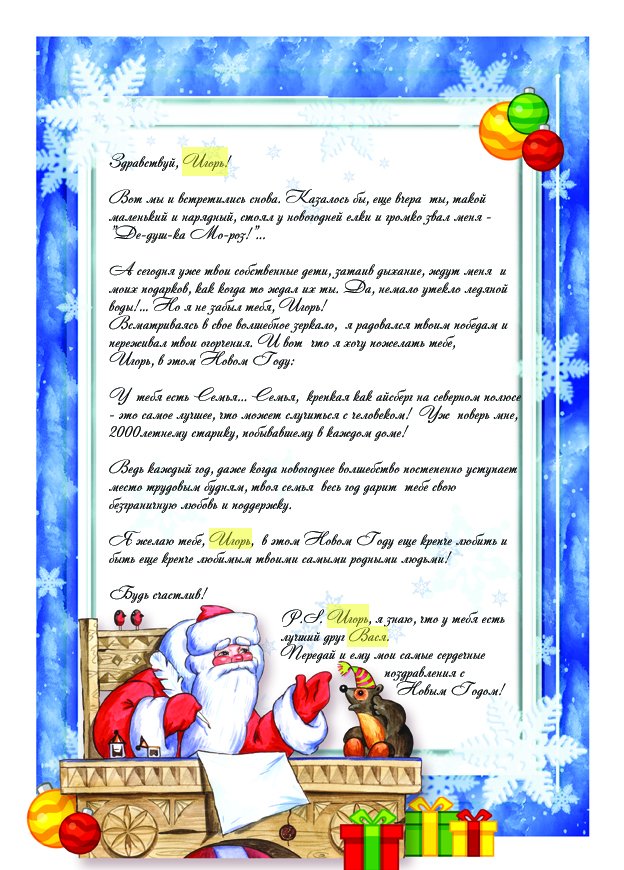 Здравствуй, Игорь!
Вот мы и встретились снова. Казалось бы, еще вчера ты, такой
маленький и нарядный, стоял у новогодней елки и громко звал меня -
"Де-душ-ка Мо-роз!"...
А сегодня уже твои собственные дети, затаив дыхание, ждут меня и
моих подарков, как когда то ждал их ты. Да, немало утекло ледяной
воды!... Но я не забыл тебя, Игорь!
Всматриваясь в свое волшебное зеркало, я радовался твоим победам и
переживал твои огорчения. И вот что я хочу пожелать тебе,
Игорь, в этом Новом Году:
У тебя есть Семья... Семья, крепкая как айсберг на северном полюсе
- это самое лучшее, что может случиться с человеком! Уж поверь мне,
2000летнему старику, побывавшему в каждом доме!
Ведь каждый год, даже когда новогоднее волшебство постепенно уступает
место трудовым будням, твоя семья весь год дарит тебе свою
безграничную любовь и поддержку.
Я желаю тебе, Игорь, в этом Новом Году еще крепче любить и
быть еще крепче любимым твоими самыми родными людьми!
Будь счастлив!
P.S. Игорь, я знаю, что у тебя есть
лучший друг Вася.
Передай и ему мои самые сердечные
поздравления с
Новым Годом!